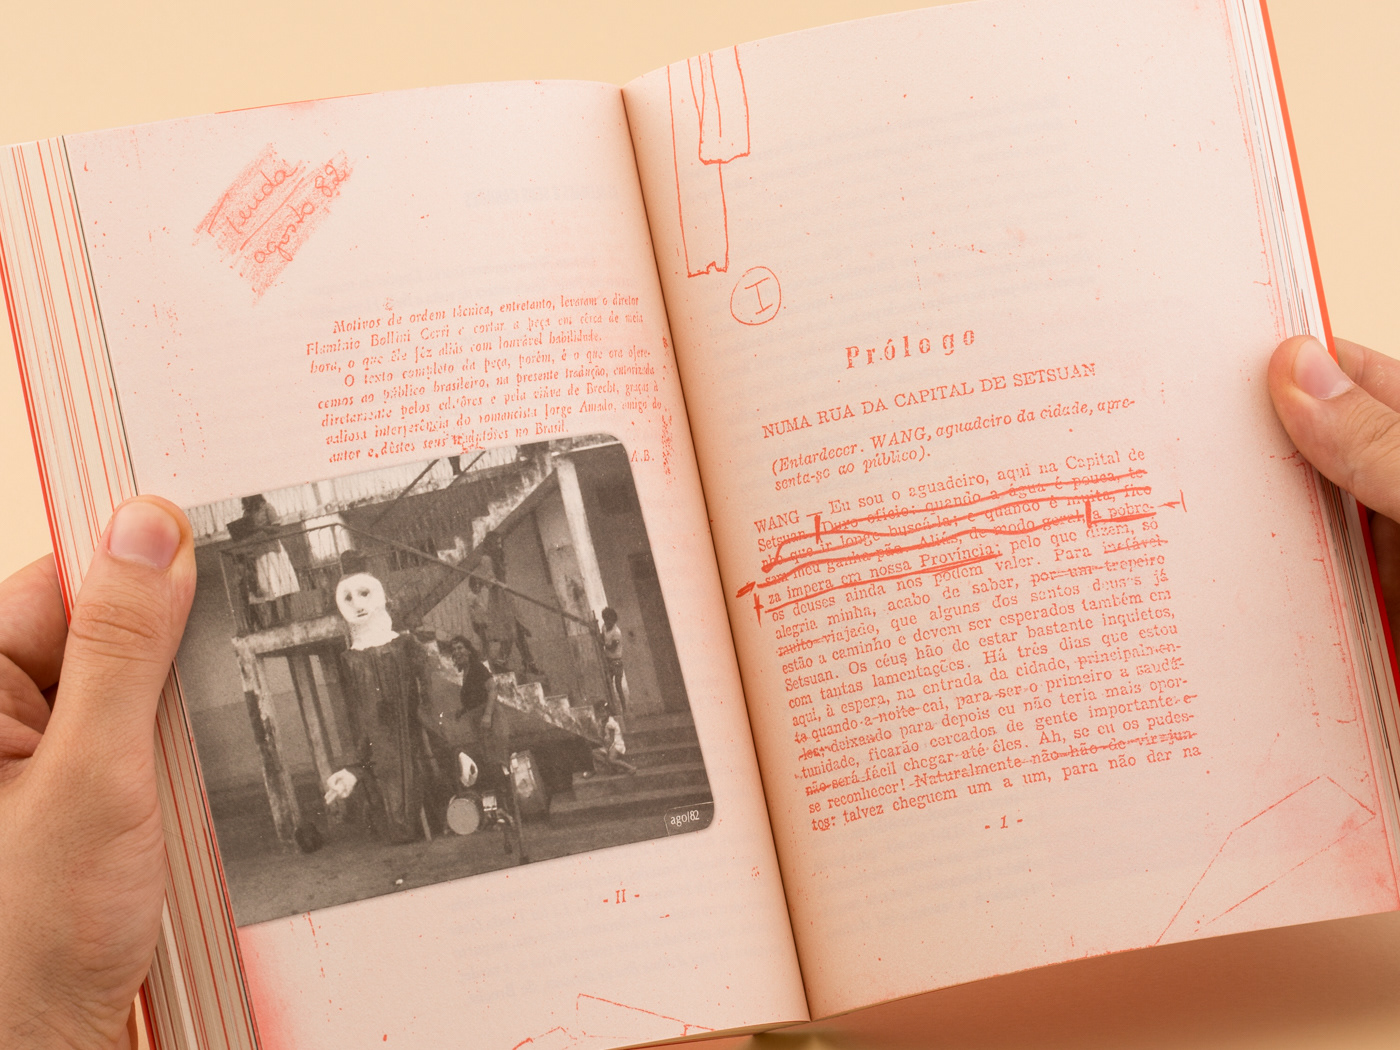 Tenda
agosto 82
Motivos de ordem técnica, entretanto, levaram o diretor
Flamínio Bollini Cerri a cortar a peça em cêrca de meia
hora, o que êle fêz aliás com louvável habilidade.
O texto completo da peça, porém, é o que ora ofere-
cemos ao público brasileiro, na presente tradução, autorizada
diretamente pelos editôres e pela viúva de Brecht, graças à
valiosa interferência do romancista Jorge Amado, amigo do
autor e dêstes seus tradutores no Brasil.
A.B.
ago|82
- II -
I
Prólogo
NUMA RUA DA CAPITAL DE SETSUAN
(Entardecer. WANG, aguadeiro da cidade, apre-
senta-se ao público).
WANG — Eu sou o aguadeiro, aqui na Capital de
Setsuan. Duro ofício: quando a água é pouca, te-
nho que ir longe buscá-la; e quando é muita, fico
sem meu ganha-pão. Aliás, de modo geral, a pobre-
za impera em nossa Província; pelo que dizem, só
os deuses ainda nos podem valer. Para inefável
alegria minha, acabo de saber, por um tropeiro
muito viajado, que alguns dos santos deuses já
estão a caminho e devem ser esperados também em
Setsuan. Os céus hão de estar bastante inquietos,
com tantas lamentações. Há três dias que estou
aqui, à espera, na entrada da cidade, principalmen-
te quando a noite cai, para ser o primeiro a saudá-
los; deixando para depois eu não teria mais opor-
tunidade, ficarão cercados de gente importante e
não será fácil chegar até êles. Ah, se eu os pudes-
se reconhecer! Naturalmente não hão de vir jun-
tos: talvez cheguem um a um, para não dar na
- 1 -